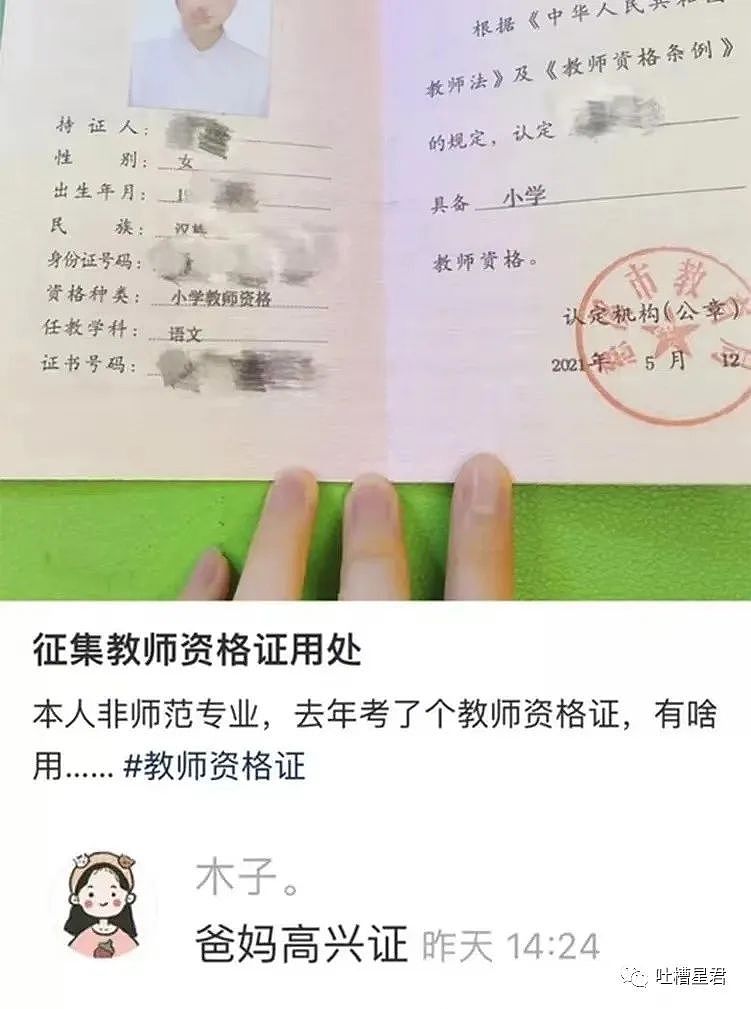 根据《中华人民共和国
教师法》及《教师资格条例》
的规定，认定
具备 小学
教师资格。
认定机构(公章)
2021年 5月 12
市教
持证人：
性别：女
出生年月：
民族：汉族
身份证号码：
资格种类：小学教师资格
任教学科：语文
证书号码：
征集教师资格证用处
本人非师范专业，去年考了个教师资格证，有啥
用...... #教师资格证
木子。
爸妈高兴证 昨天 14:24
吐槽星君